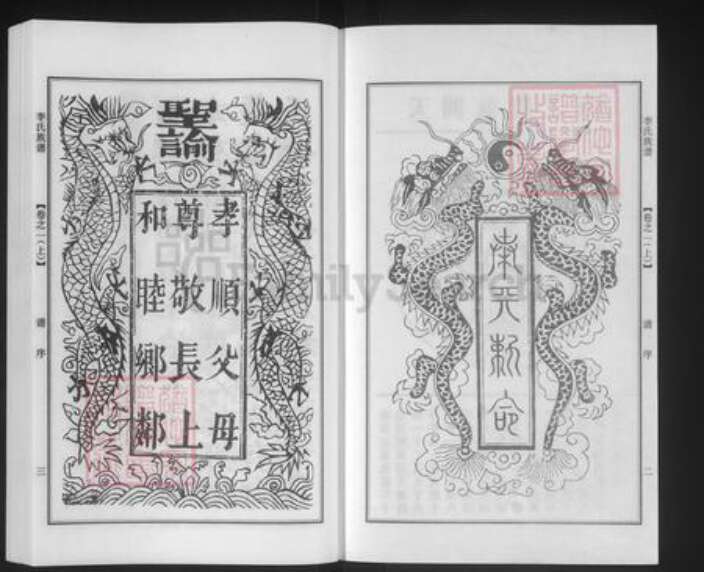 李氏族譜
【卷之一(上)】
譜序
二
奉天勅命
聖諭
孝順父母
尊敬長上
和睦鄉鄰
李氏族譜
【卷之一(上)】
譜序
三
FamilySearch